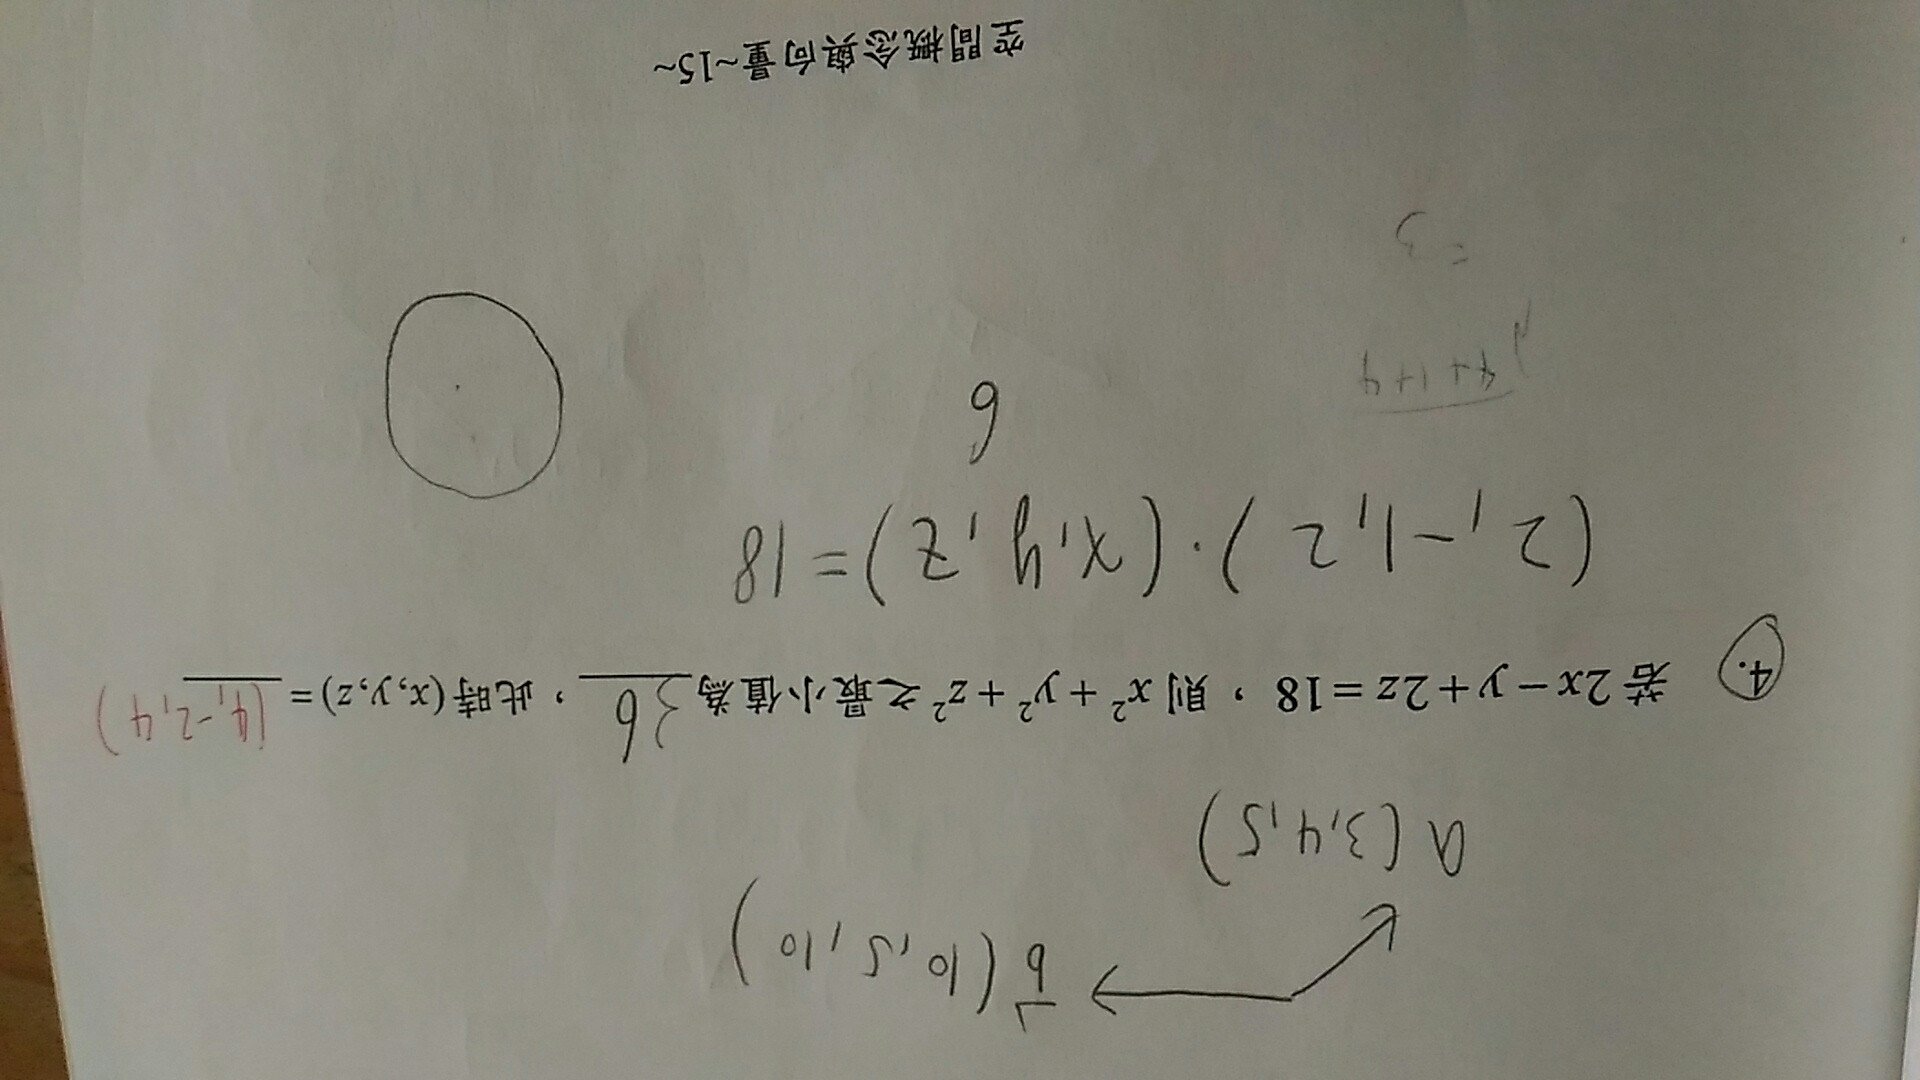 b (10, 5, 10)
a (3, 4, 5)
4. 若 2x − y + 2z = 18，則 x² + y² + z² 之最小值為 36，此時 (x, y, z) = (4, -2, 4)
(2, -1, 2)·(x, y, z) = 18
6
√4+1+4
=3
空間概念與向量~15~